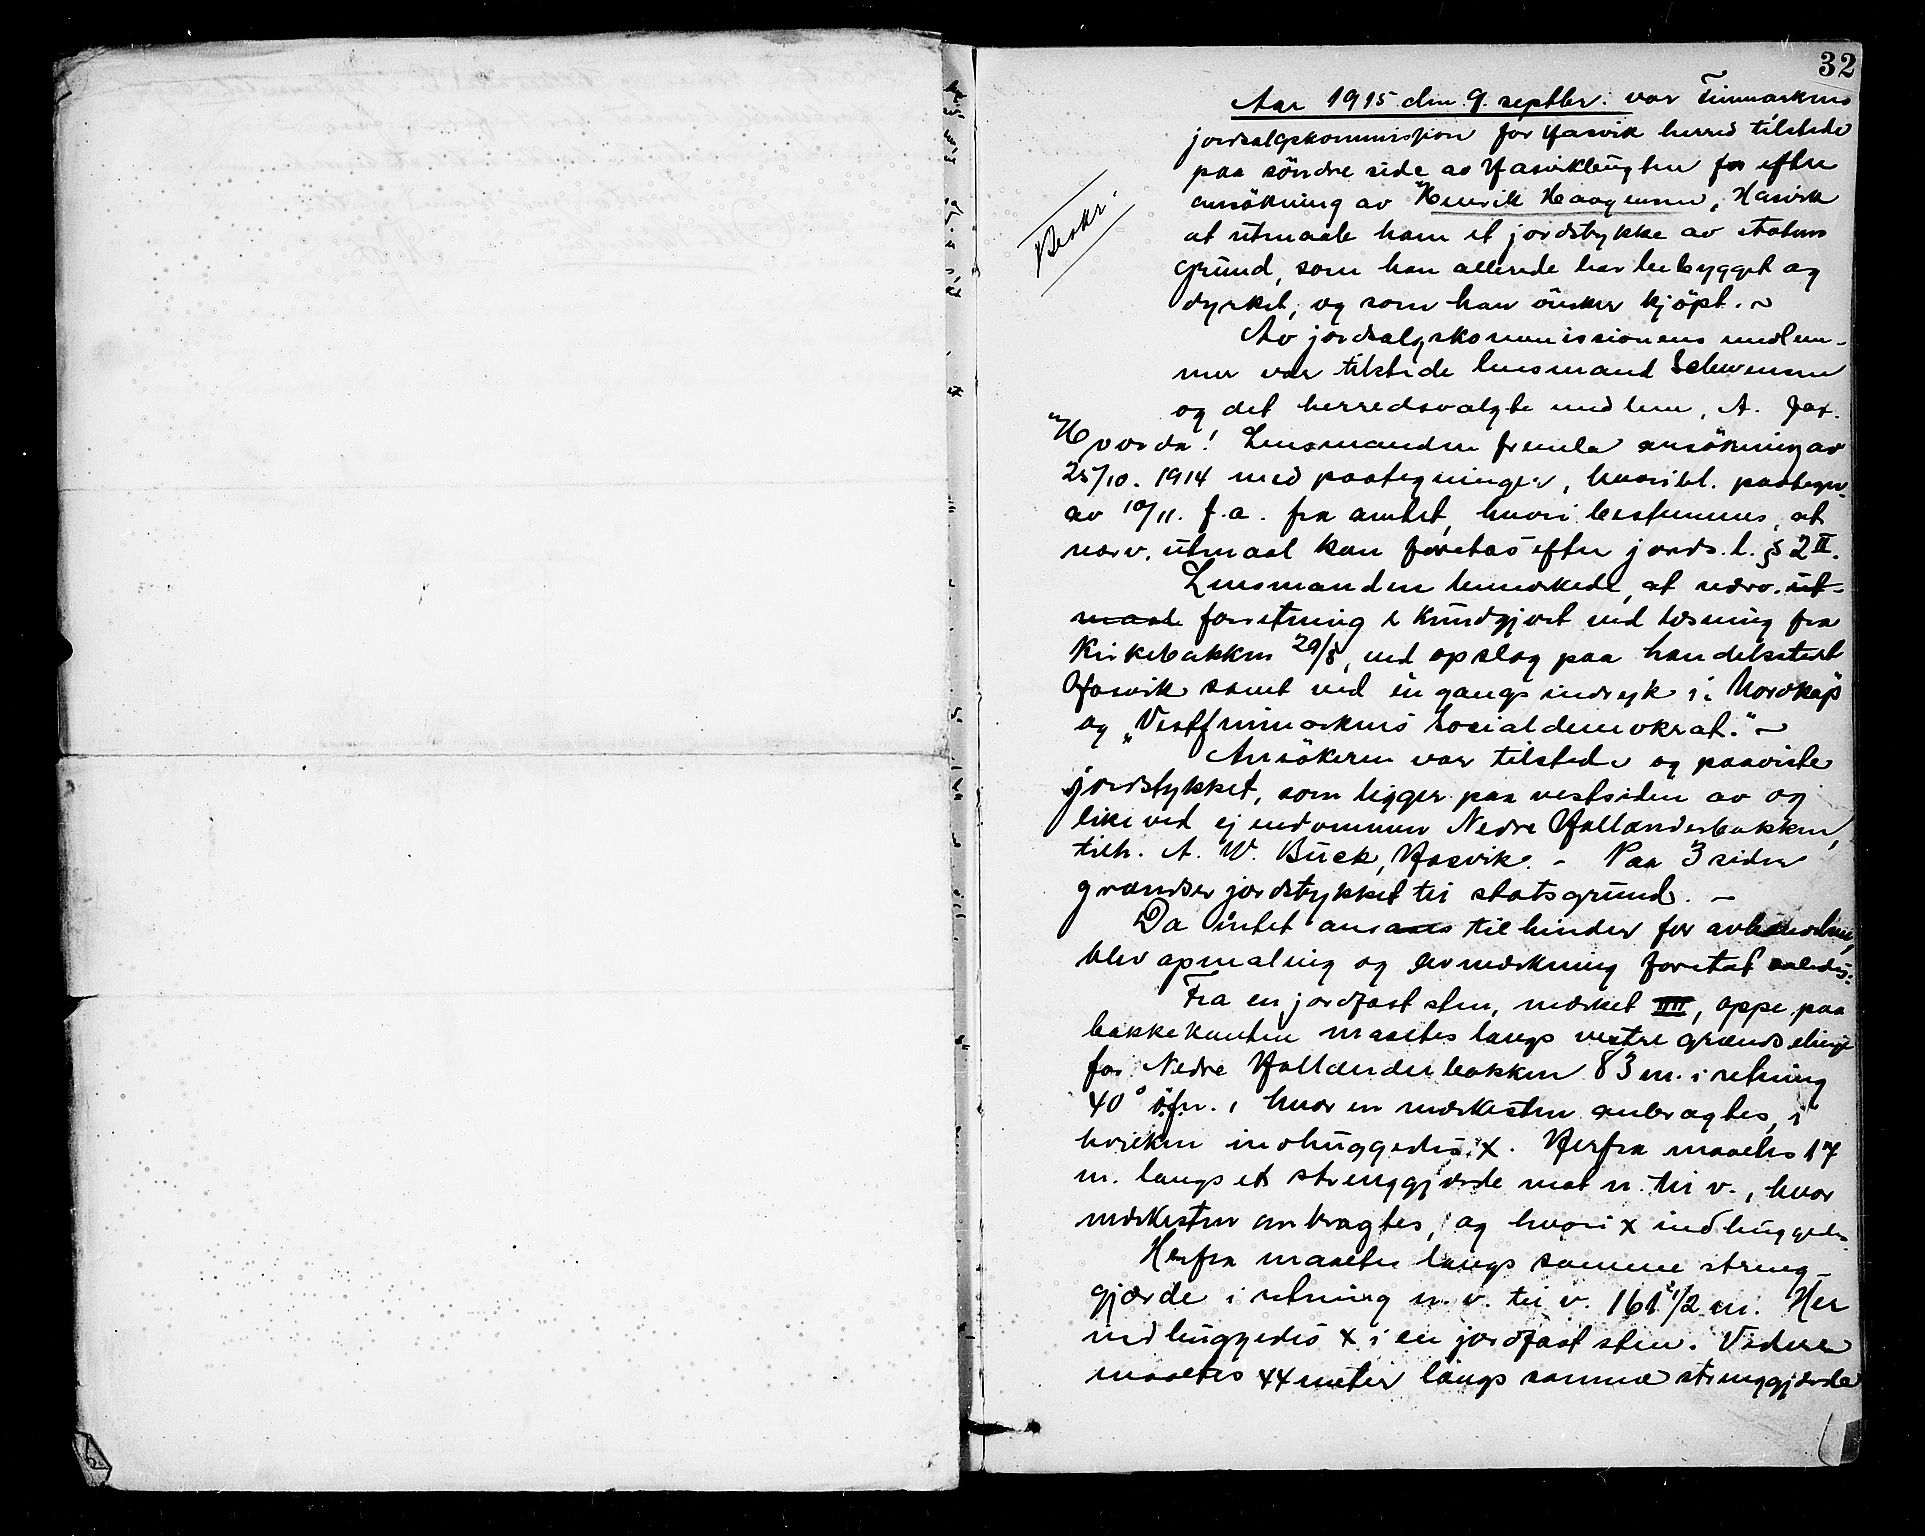 32
Aar 1915 den 9. septbr. var Finmarkens
jordsalgskommission for Hasvik herred tilstede
paa söndre side av Hasvikbugten for efter
ansökning av Henrik Haagensen, Hasvik
at utmaale ham et jordstykke av statens
grund, som han allerede har bebygget og
dyrket, og som han önsker kjöpt. ~
Beskr.
Av jordsalgskommissionens medlem-
mer var tilstede lensmand Schwensen
og det herredsvalgte medlem, A.
Lensmanden fremla ansökning av
25/10. 1914 med paategninger, hvoribl. paategn.
av 10/11. f.a. fra amtet, hvori bestemmes, at
nærv. utmaal kan foretas efter jords. l. § 2 II.
Lensmanden bemerkede, at nærv. ut-
maal forretning er kundgjort ved læsning fra
Kirkebakken 29/8, ved opslag paa handelsstedet
Hasvik samt ved én gangs indryk i "Nordkap"
og "Vestfinmarkens Socialdemokrat." ~
Ansökeren var tilstede og paaviste
jordstykket, som ligger paa vestsiden av og
like ved ejendommen Nedre Hollænderbakken,
tilh. A. W. Buck, Hasvik. - Paa 3 sider
grændser jordstykket til statsgrund. -
Da intet ansaaes til hinder for avhændelsen,
blev opmaling og avmerkning foretat saaledes:
Fra en jordfast sten, merket IIII, oppe paa
bakkekanten maaltes langs vestre grændselinje
for Nedre Hollænderbakken 83 m. i retning
40° ö.f.n., hvor en merkesten anbragtes, i
hvilken indhuggedes x. Herfra maaltes 17
m. langs et strenggjærde mot n. til v., hvor
merkesten anbragtes, og hvori x indhuggedes.
Herfra maaltes langs samme streng-
gjærde i retning n. v. til v. 161 1/2 m. Her
indhuggedes x i en jordfast sten. Videre
maaltes 44 meter langs samme strenggjærde